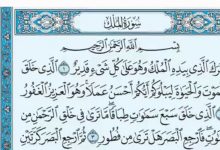 سورة الملك
بسم الله الرحمن الرحيم
رك الذي بيده الملك وهو على كل شيء قدير ١ الذي خلق
موت والحيوة ليبلوكم أيكم أحسن عملا وهو العزيز الغفور
ذي خلق سبع سموت طباقا ما ترى في خلق الرحمن من
وت فارجع البصر هل ترى من فطور ٣ ثم ارجع البصر كرتين